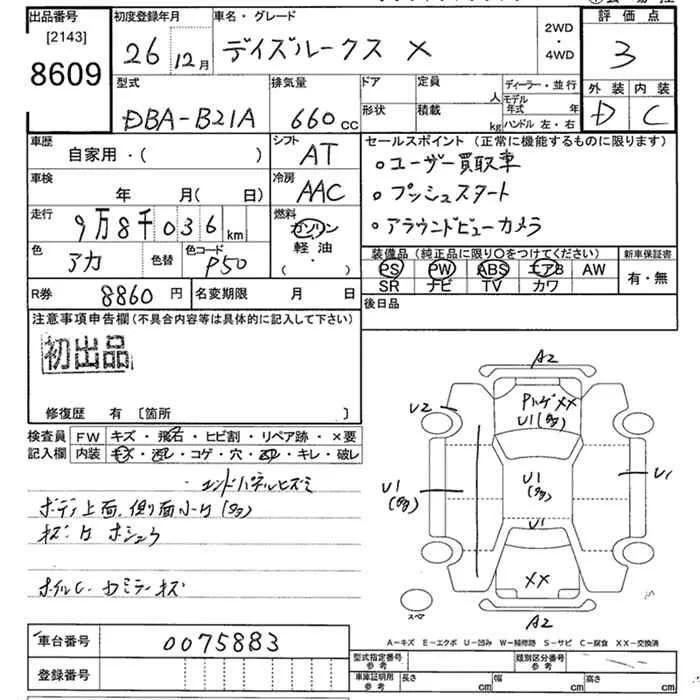 出品番号 初度登録年月 車名・グレード 2WD・4WD 評価点
[2143]
8609 26 12月 デイズルークス X 3
型式 排気量 ドア 定員 人 ディーラー・並行 外装 内装
DBA-B21A 660cc 形状 積載 kg モデル年式 年 ハンドル 左・右 D C
車歴 自家用・( ) シフト AT セールスポイント (正常に機能するものに限ります)
○ユーザー買取車
車検 年 月( 日) 冷房 AAC ○プッシュスタート
走行 9万8千036km 燃料 ガソリン・軽油・( ) ○アラウンドビューカメラ
色 アカ 色替 色コード P50
装備品 (純正品に限り○をつけてください) 新車保証書
PS PW ABS エアB AW 有・無
SR ナビ TV カワ
R券 8860円 名変期限 月 日 後日品
注意事項申告欄 (不具合内容等は具体的に記入して下さい)
初出品
修復歴 有 [箇所 ]
検査員記入欄 FW キズ・飛石・ヒビ割・リペア跡・×要
内装 キズ・汚レ・コゲ・穴・ヌレ・キレ・破レ
・エンドパネルヒズミ
ボディ上面、側面小U(多多)
キズ・U ホシュウ
ホイルC・カミラーキズ
A2
U2
XX
U1(多多)
U1(多多)
U1(多多)
U1
U1
XX
スペア
A2
A-キズ E-エクボ U-凹み W-補修跡 S-サビ C-腐食 XX-交換済
車台番号 0075883
登録番号
型式指定番号 参考 類別区分番号 参考
車庫証明用 参考 長さ cm 幅 cm 高さ cm